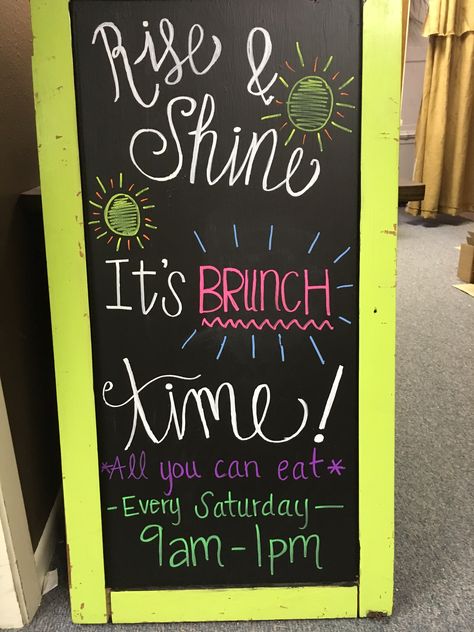 Rise &
Shine
It's BRUNCH
time!
*All you can eat*
-Every Saturday-
9am-1pm